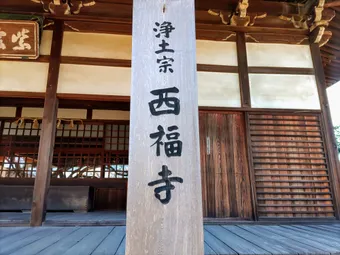 浄土宗
西福寺